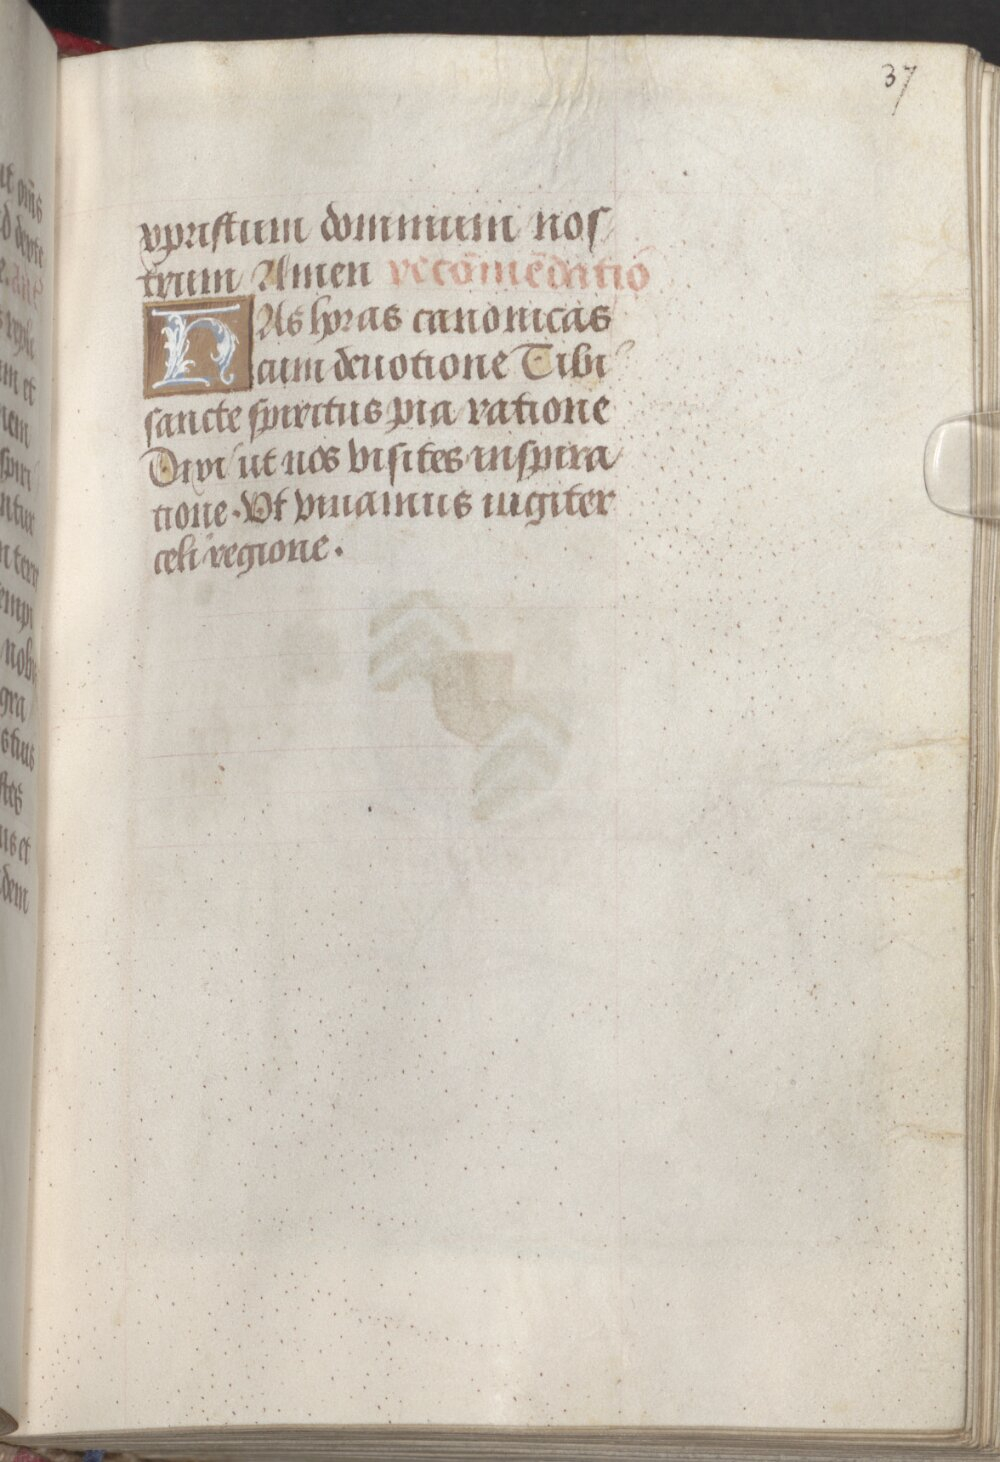 37
xpristum dominum nos
trum Amen recōmēdatiō
HAs horas canonicas
cum deuotione Tibi
sancte spiritus pia ratione
Dixi ut nos visites inspira
tione. Vt viuamus iugiter
celi regione.